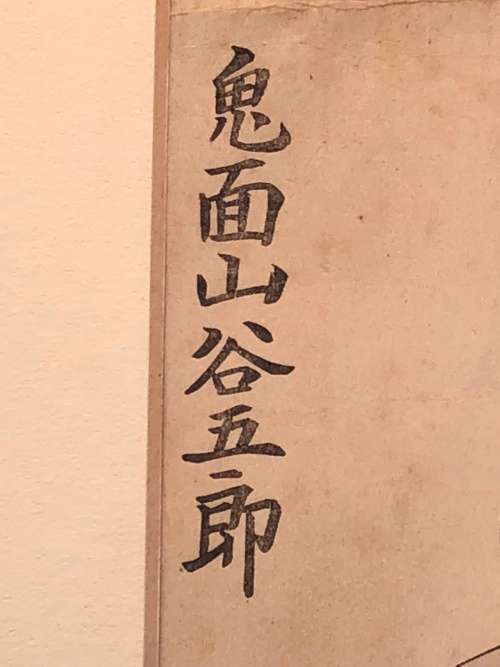 鬼面山谷五郎